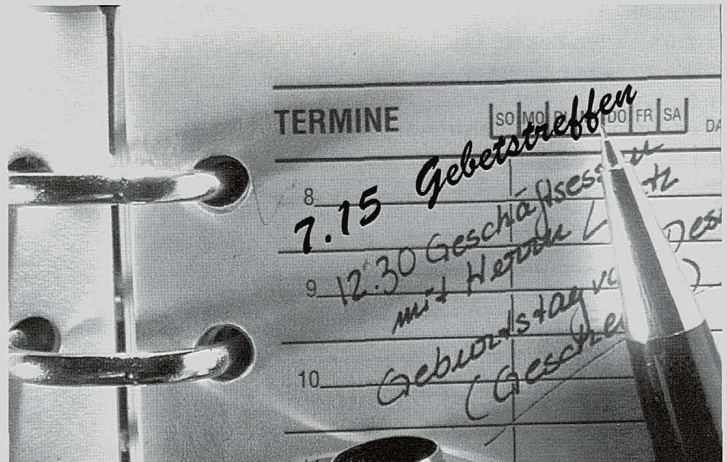 TERMINE SO MO DO FR SA
7.15 Gebetstreffen
8
12.30 Geschäftsessen
mit Herrn
9
Geburtstag
10